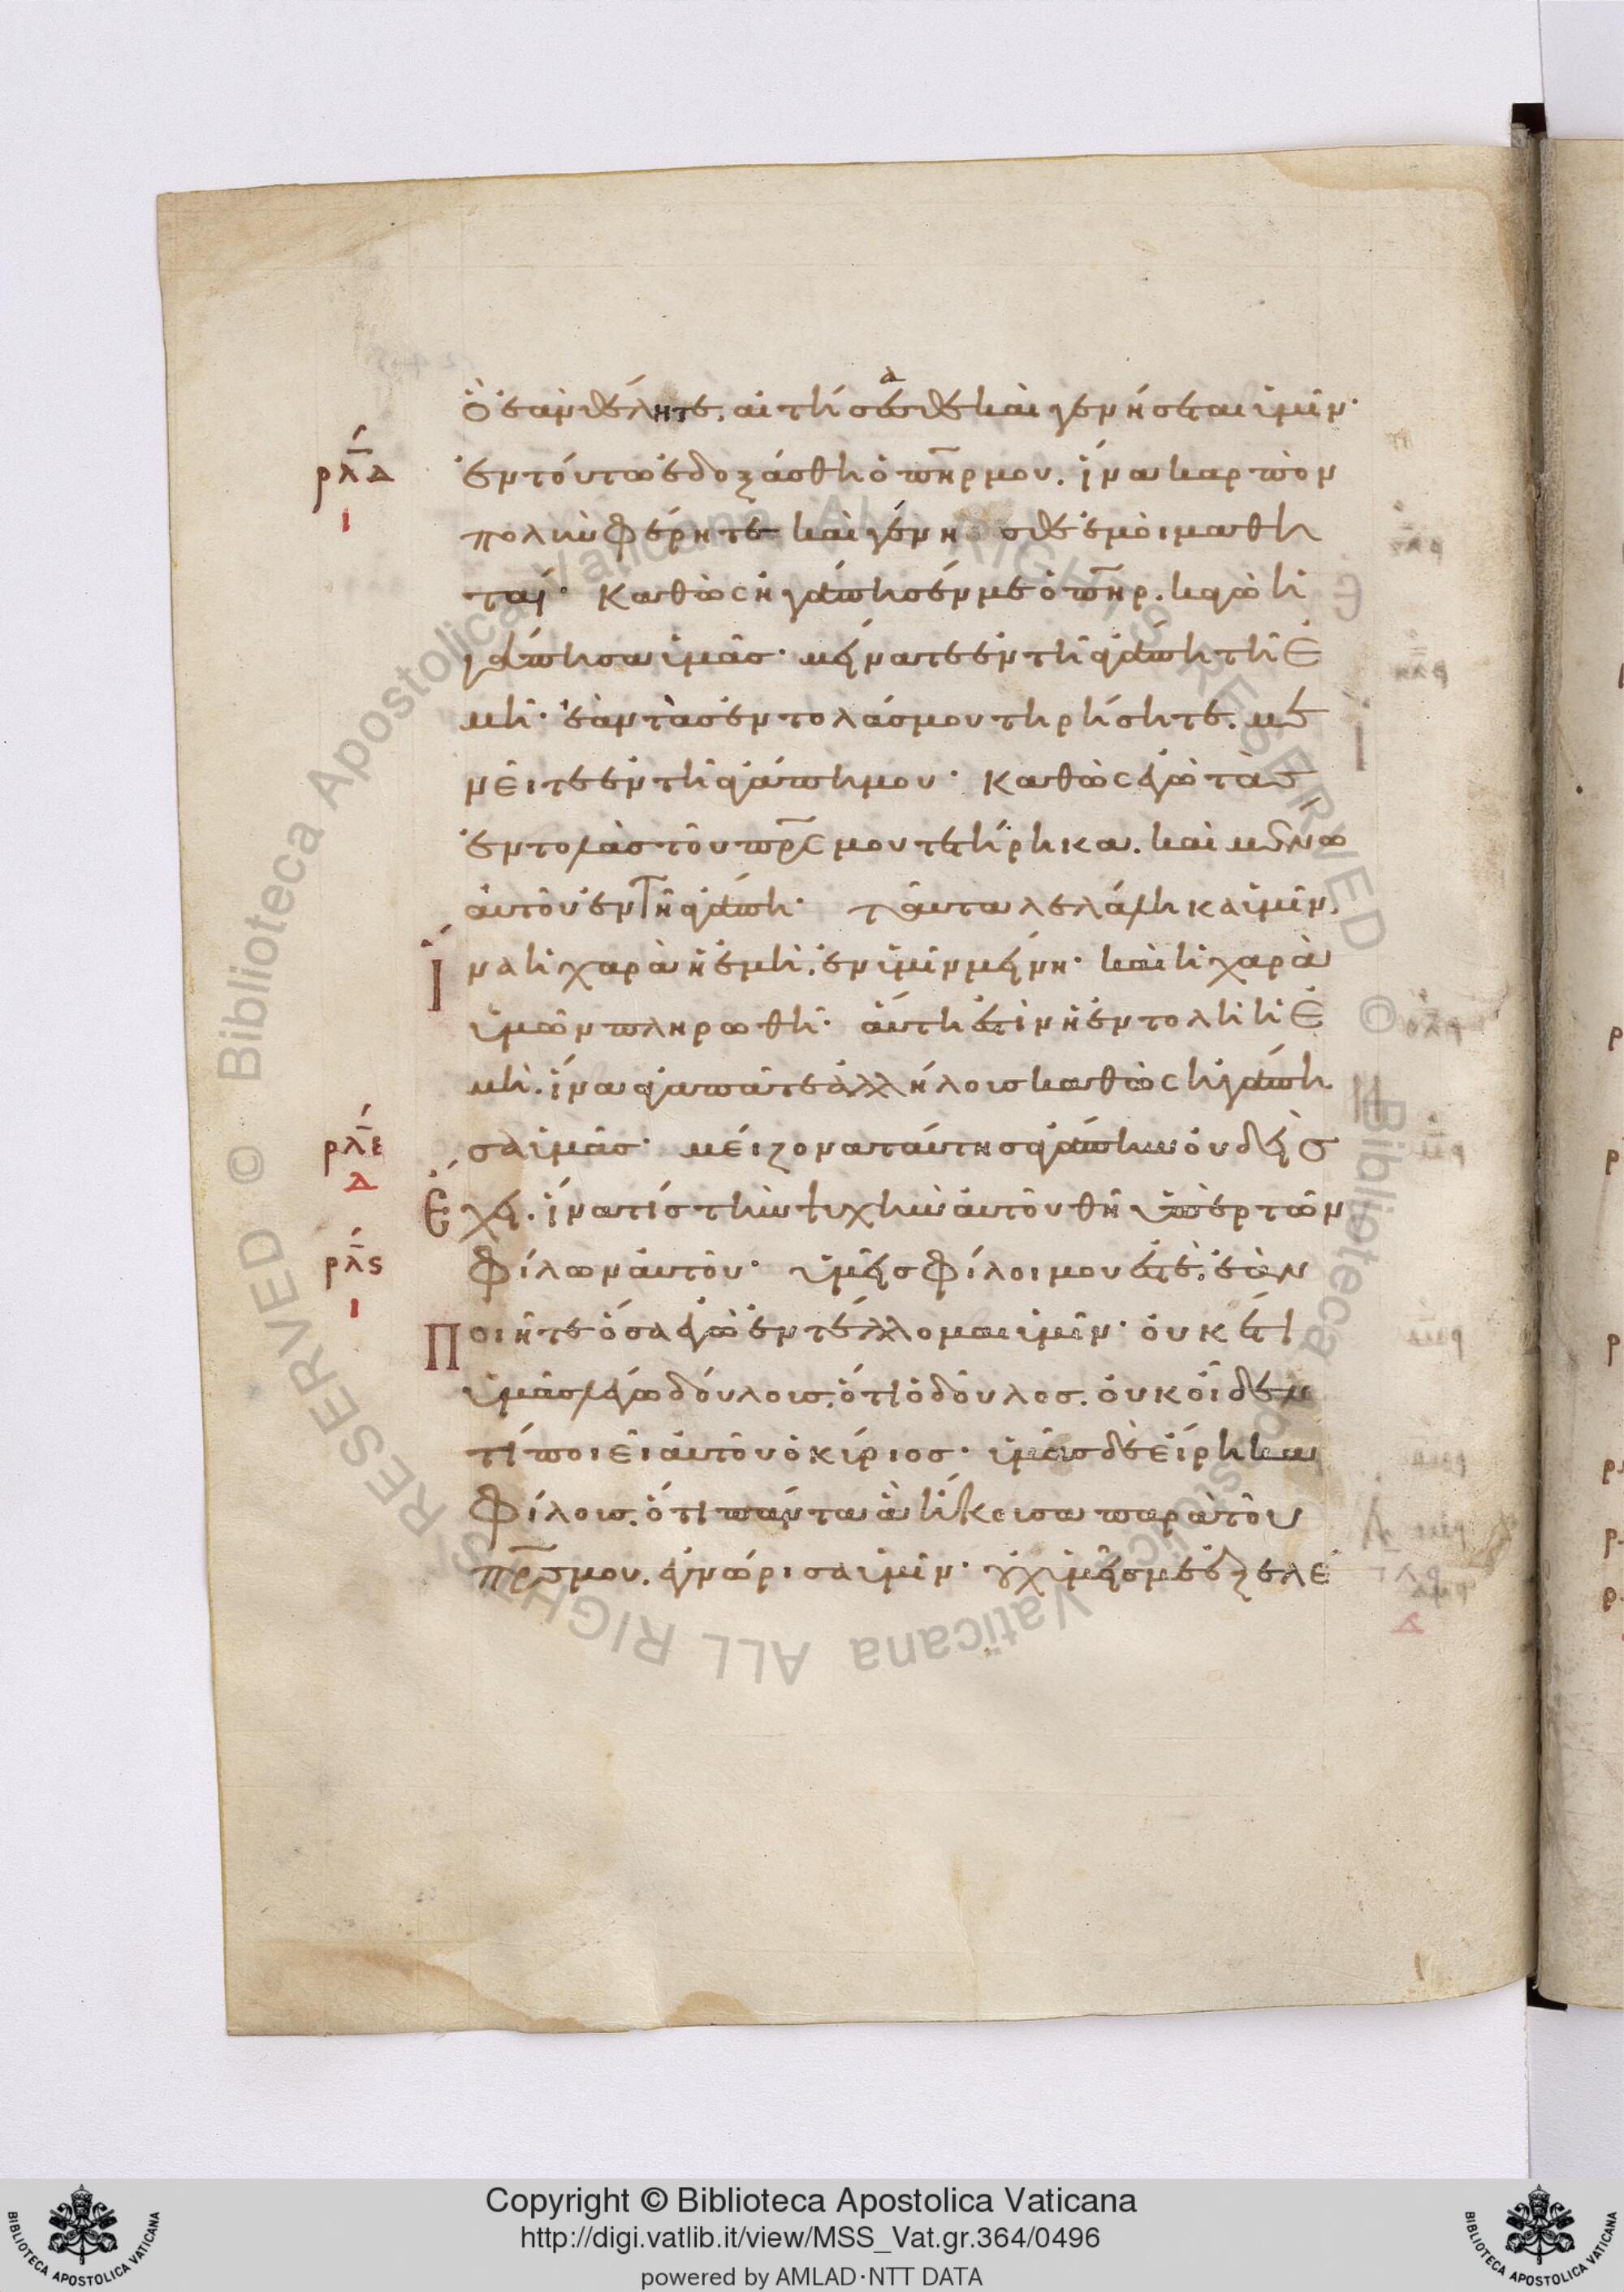 ὃ ἐὰν θέλητε. αἰτήσεσθε καὶ γενήσεται ὑμῖν·
α
ρλδ
ἐν τούτω ἐδοξάσθη ὁ πηρ μου. ἵνα καρπὸν
ι
πολὺν φέρητε καὶ γένη σθε ἐμοὶ μαθη
ταί· Καθὼς ἠγάπησέν με ὁ πηρ. καγὼ ἠ
γάπησα ὑμᾶς· μείνατε ἐν τῆ ἀγάπη τῆ ἐ
μῆ· ἐὰν τὰς ἐντολάς μου τηρήσητε. με
νεῖτε ἐν τῆ ἀγάπη μου· Καθὼς ἐγὼ τὰς
ἐντολὰς τοῦ πρς μου τετήρηκα. καὶ μένω
αὐτοῦ ἐν τῆ ἀγάπη· ταῦτα λελάληκα ὑμῖν.
Ἵ
να ἡ χαρὰ ἡ ἐμὴ. ἐν ὑμῖν μείνη· καὶ ἡ χαρὰ
ὑμῶν πληρωθῆ· αὕτη ἐστὶν ἡ ἐντολὴ ἡ ἐ
μὴ. ἵνα ἀγαπᾶτε ἀλλήλους καθὼς ἠγάπη
ρλε
σα ὑμᾶς· μείζονα ταύτης ἀγάπην οὐδεὶς
δ
Ἔχει. ἵνα τίς τὴν ψυχὴν αὐτοῦ θῆ ὑπὲρ τῶν
ρλς
φίλων αὐτοῦ· ὑμεῖς φίλοι μου ἐστέ. ἐὰν
ι
Ποιῆτε ὅσα ἐγὼ ἐντέλλομαι ὑμῖν· οὐκέτι
ὑμᾶς λέγω δούλους. ὅτι ὁ δοῦλος. οὐκ οἶδεν
τί ποιεῖ αὐτοῦ ὁ κύριος· ὑμᾶς δὲ εἴρηκα
φίλους. ὅτι πάντα ἃ ἤκουσα παρὰ τοῦ
πρς μου. ἐγνώρισα ὑμῖν· οὐχ ὑμεῖς με ἐξελέ
Copyright © Biblioteca Apostolica Vaticana
http://digi.vatlib.it/view/MSS_Vat.gr.364/0496
powered by AMLAD·NTT DATA
BIBLIOTECA APOSTOLICA VATICANA
BIBLIOTECA APOSTOLICA VATICANA
© Biblioteca Apostolica Vaticana ALL RIGHTS RESERVED © Biblioteca Apostolica Vaticana ALL RIGHTS RESERVED